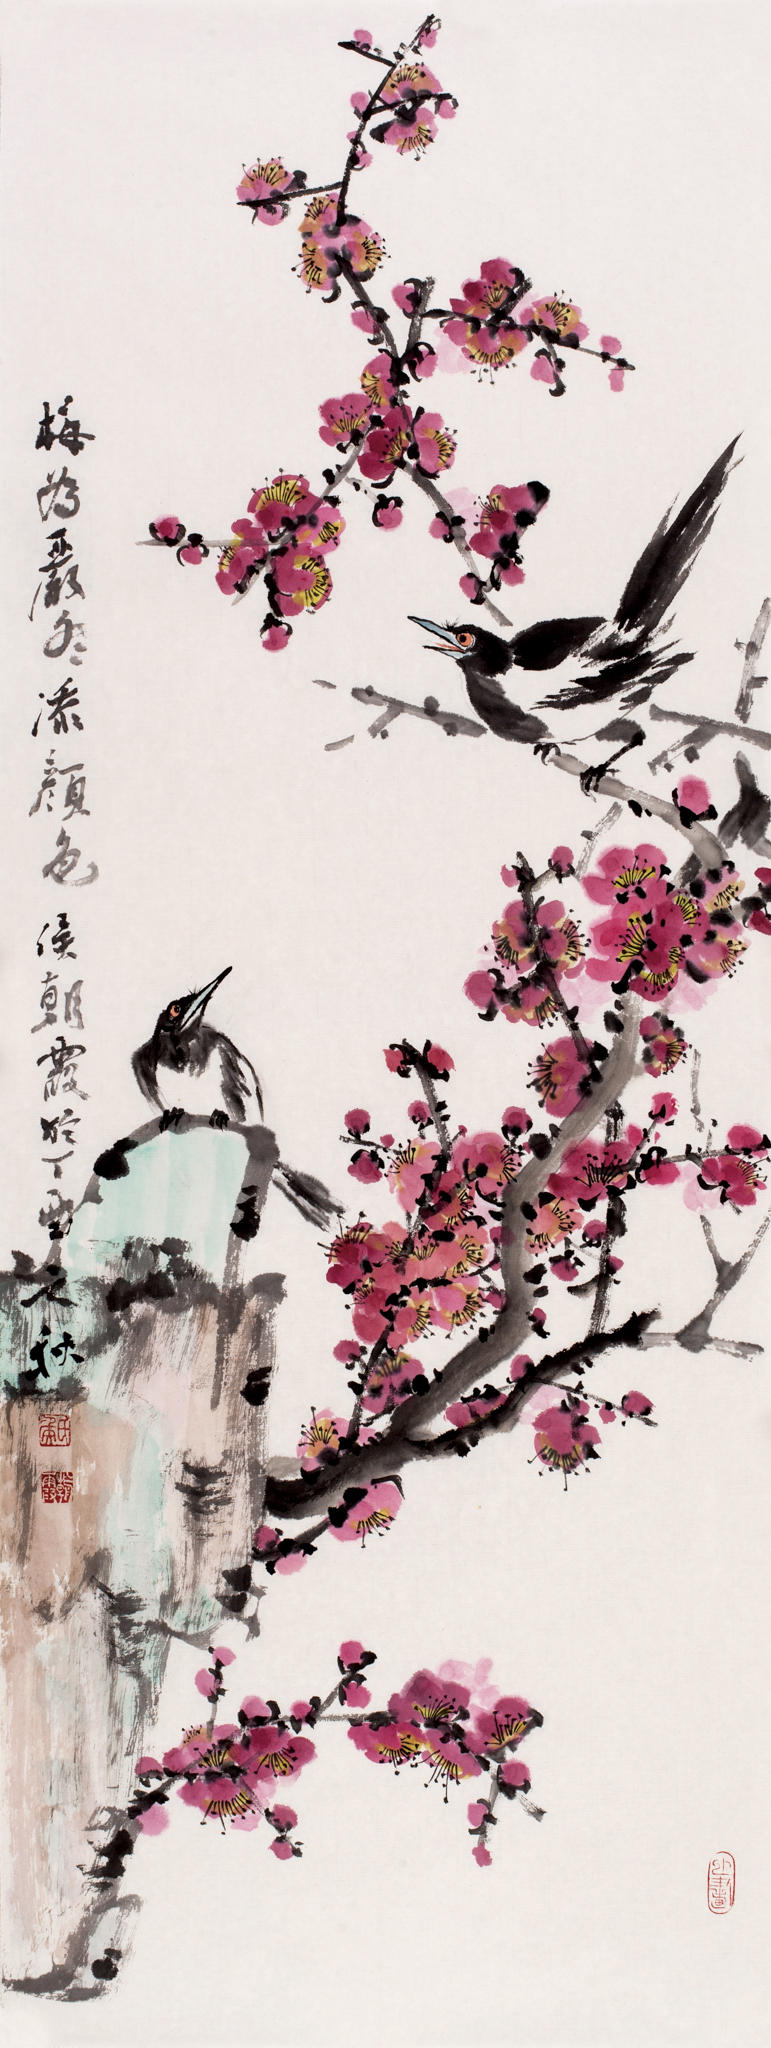 梅为嚴冬添顔色 侯朝霞於丁酉之秋